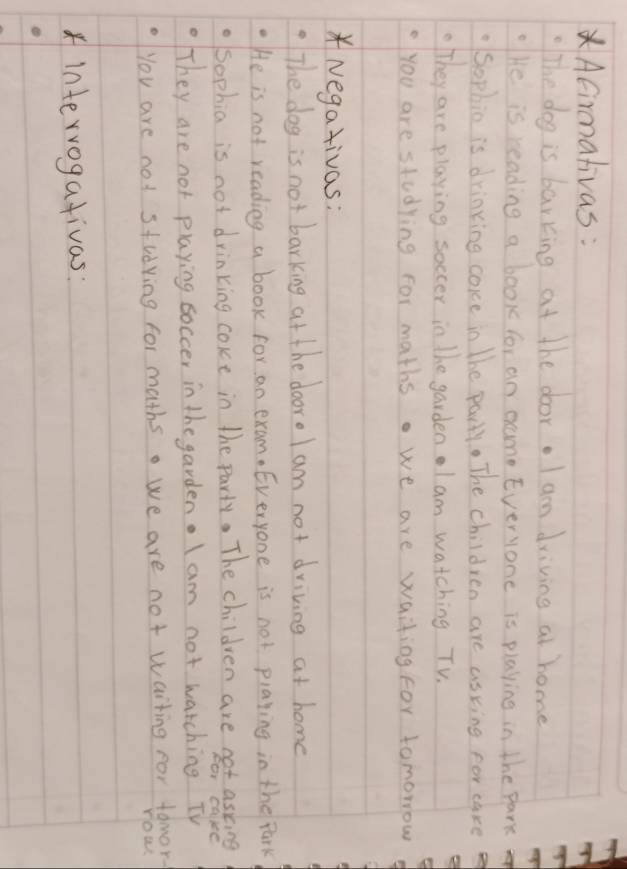 * Afirmativas:
• The dog is barking at the door • I am driving at home
• He is reading a book for an exam • Everyone is playing in the park
• Sophia is drinking coke in the party • The children are asking for cake
• They are playing soccer in the garden • I am watching TV.
• You are studying for maths • We are waiting for tomorrow
* Negativas:
• The dog is not barking at the door • I am not driving at home
• He is not reading a book for an exam • Everyone is not playing in the park
• Sophia is not drinking coke in the party • The children are not asking for cake
• They are not playing soccer in the garden • I am not watching TV
• You are not studying for maths • We are not waiting for tomor-
row
* Interrogativas: